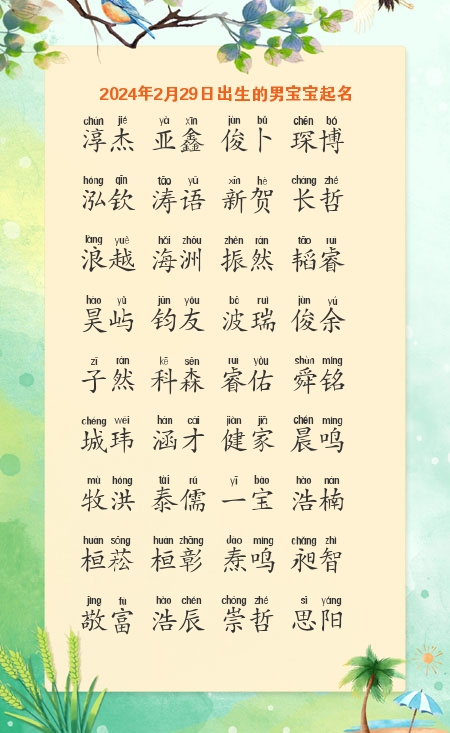 2024年2月29日出生的男宝宝起名
chún jié yà xīn jùn bǔ chēn bó
淳杰 亚鑫 俊卜 琛博
hóng qīn tāo yǔ xīn hè cháng zhé
泓钦 涛语 新贺 长哲
làng yuè hǎi zhōu zhèn rán tāo ruì
浪越 海洲 振然 韬睿
hào yǔ jūn yǒu bō ruì jùn yú
昊屿 钧友 波瑞 俊余
zǐ rán kē sēn ruì yòu shùn míng
子然 科森 睿佑 舜铭
chéng wěi hán cái jiàn jiā chén míng
城玮 涵才 健家 晨鸣
mù hóng tài rú yī bǎo hào nán
牧洪 泰儒 一宝 浩楠
huán sōng huán zhāng dào míng chǎng zhì
桓菘 桓彰 焘鸣 昶智
jìng fù hào chén chóng zhé sī yáng
敬富 浩辰 崇哲 思阳